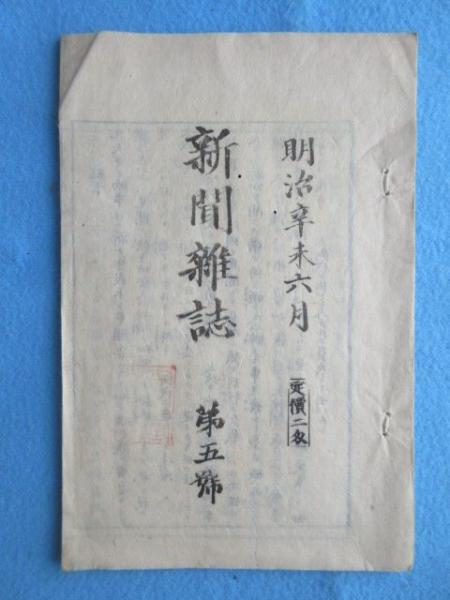 明治辛未六月
定價二匁
新聞雜誌
第五號